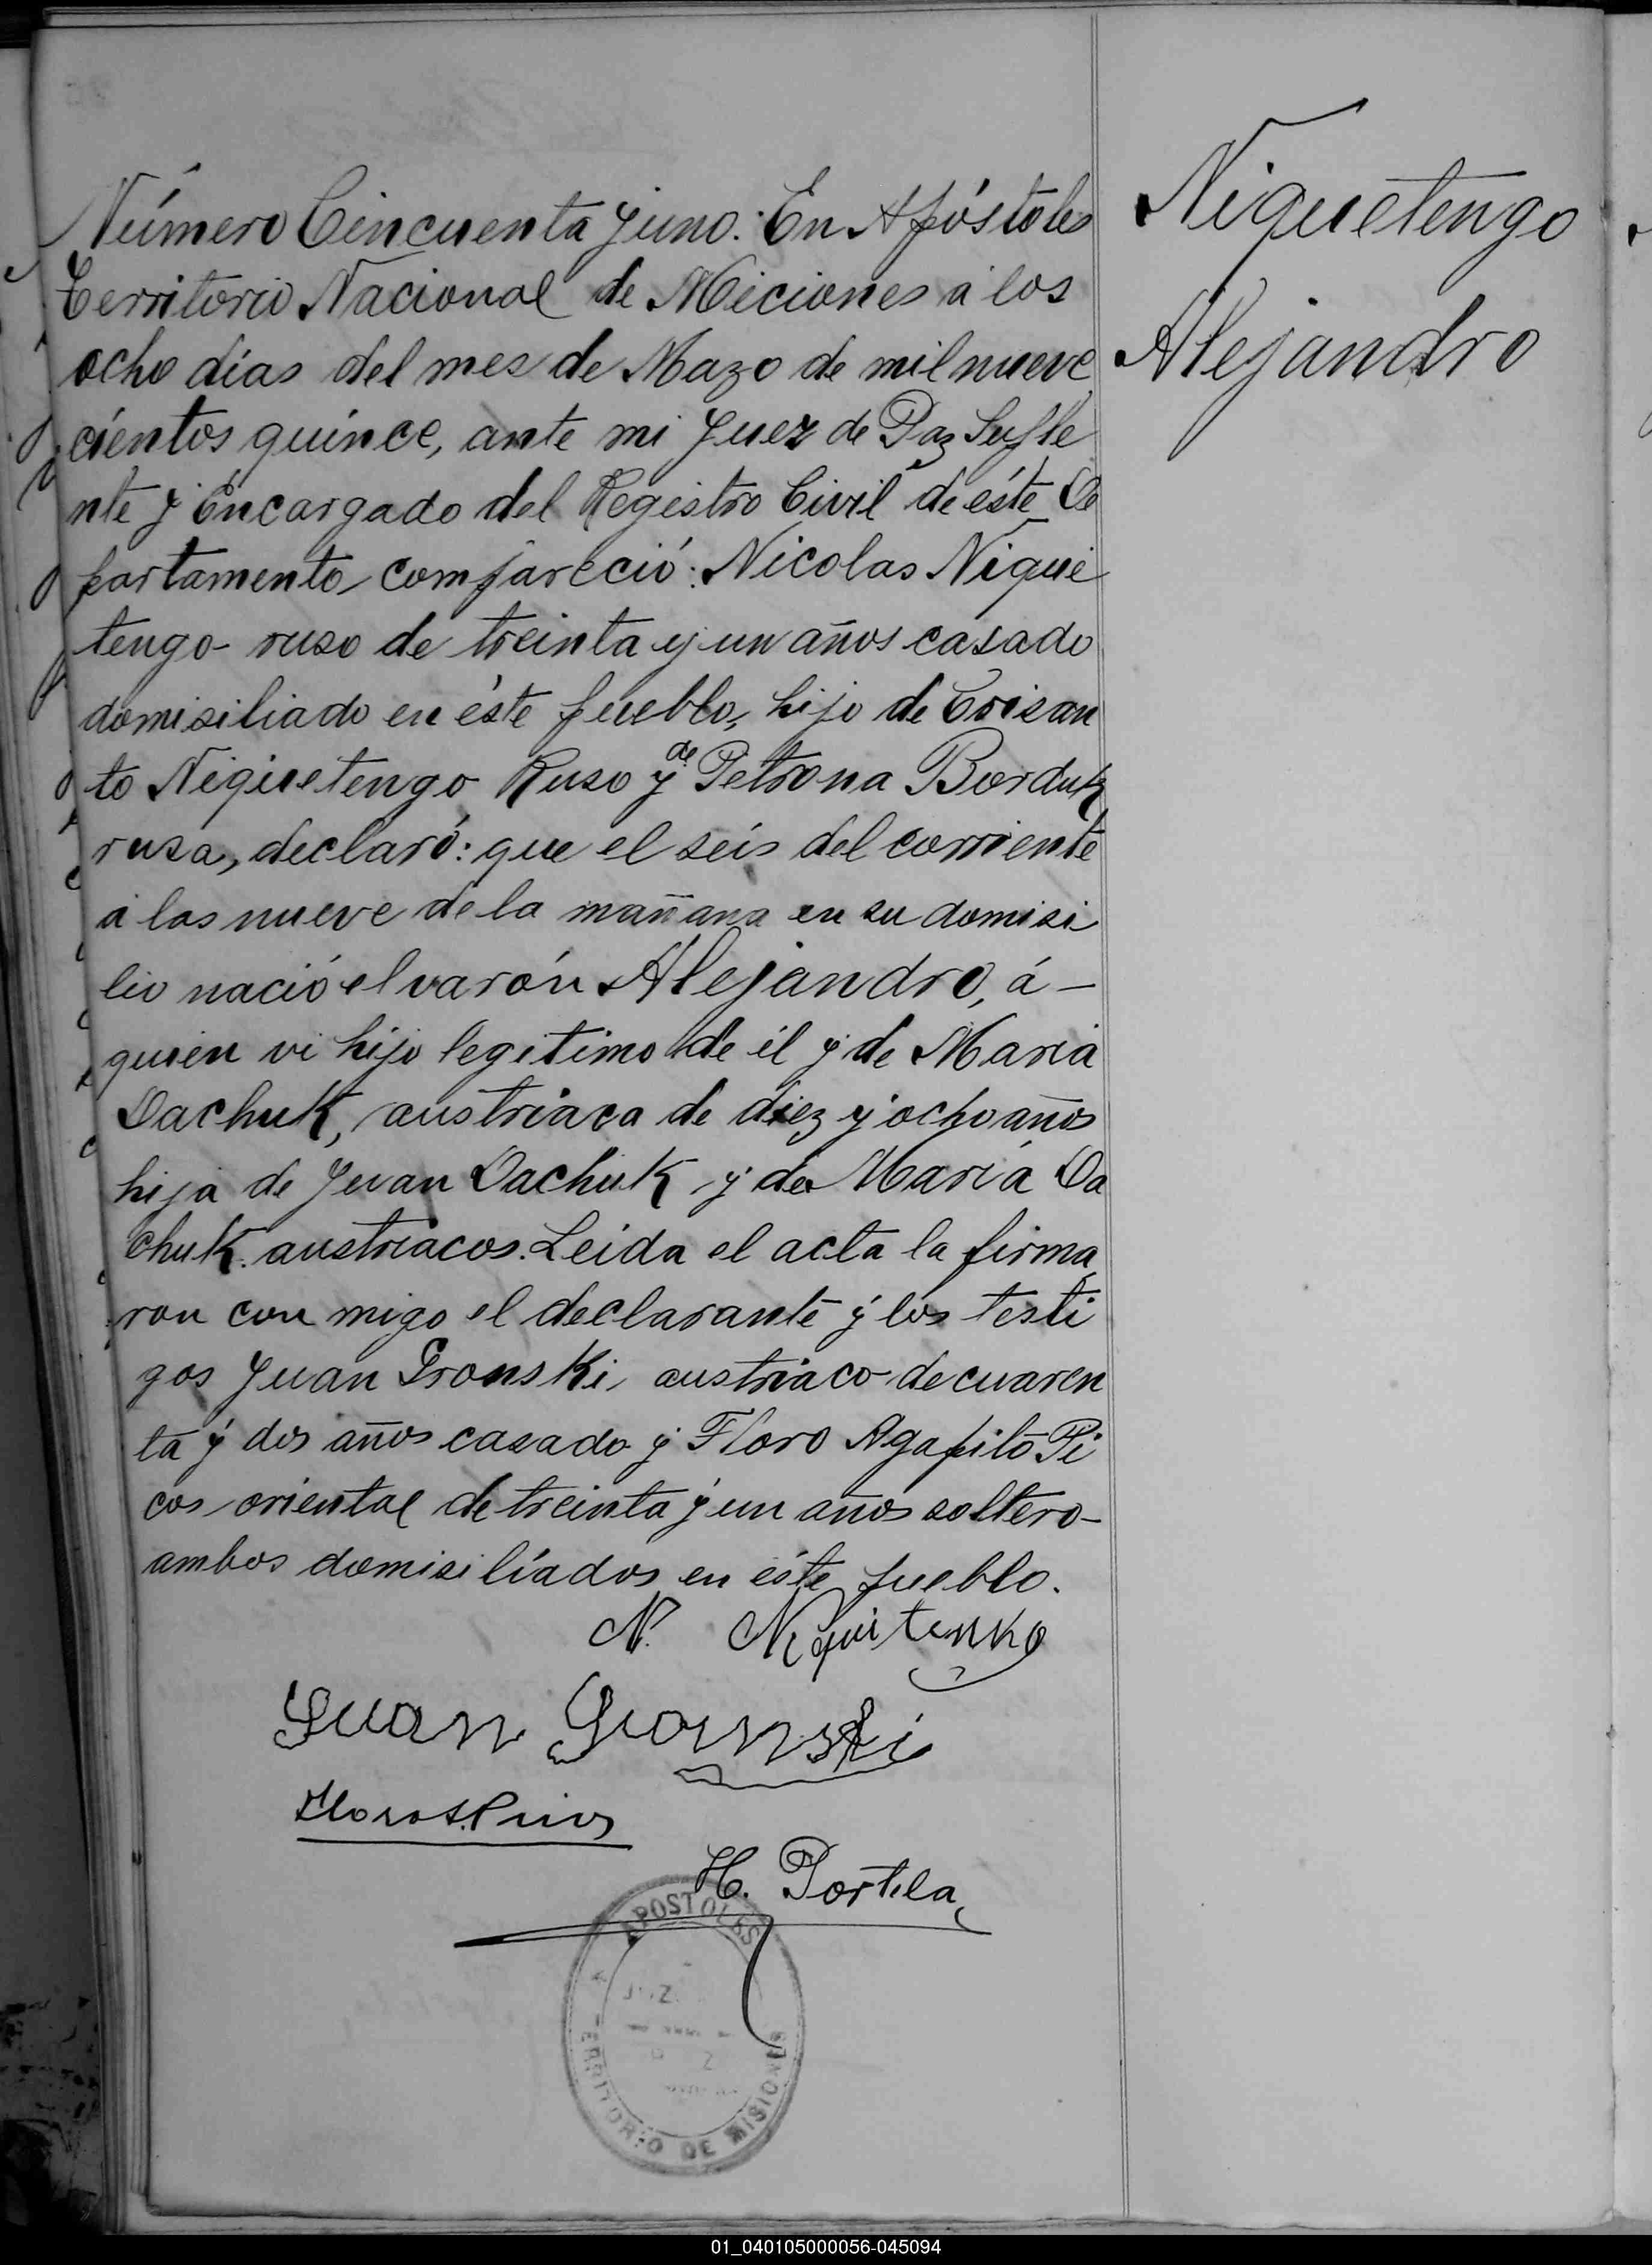 Número Cincuenta y uno. En Apóstoles
Territorio Nacional de Miciones á los
ocho días del mes de Mazo de mil nueve
cientos quince, ante mi Juez de Paz Suple
nte y Encargado del Registro Civil de éste De
partamento compareció: Nicolas Nique
tengo ruso de treinta y un años casado
domisiliado en éste pueblo, hijo de Crisan
to Niquetengo Ruso y de Petrona Borduk
rusa, declaró: que el séis del corriente
á las nueve de la mañana en su domisi
lio nació el varón Alejandro, á -
quien vi hijo legitimo de él y de María
Dachuk, austriaca de diez y ocho años
hija de Juan Dachuk y de María Da
chuk austríacos. Leida el acta la firma
ron con migo el declarante y los testi
gos Juan Gronski, austriaco de cuaren
ta y dos años casado y Floro Agapito Pi
cos oriental de treinta y un años soltero -
ambos domisiliados en éste pueblo.
Niquetengo
Alejandro
N. Niquitenko
Juan Gronski
H. Portela
APOSTOLES
TERRITORIO DE MISIONES
01_040105000056-045094